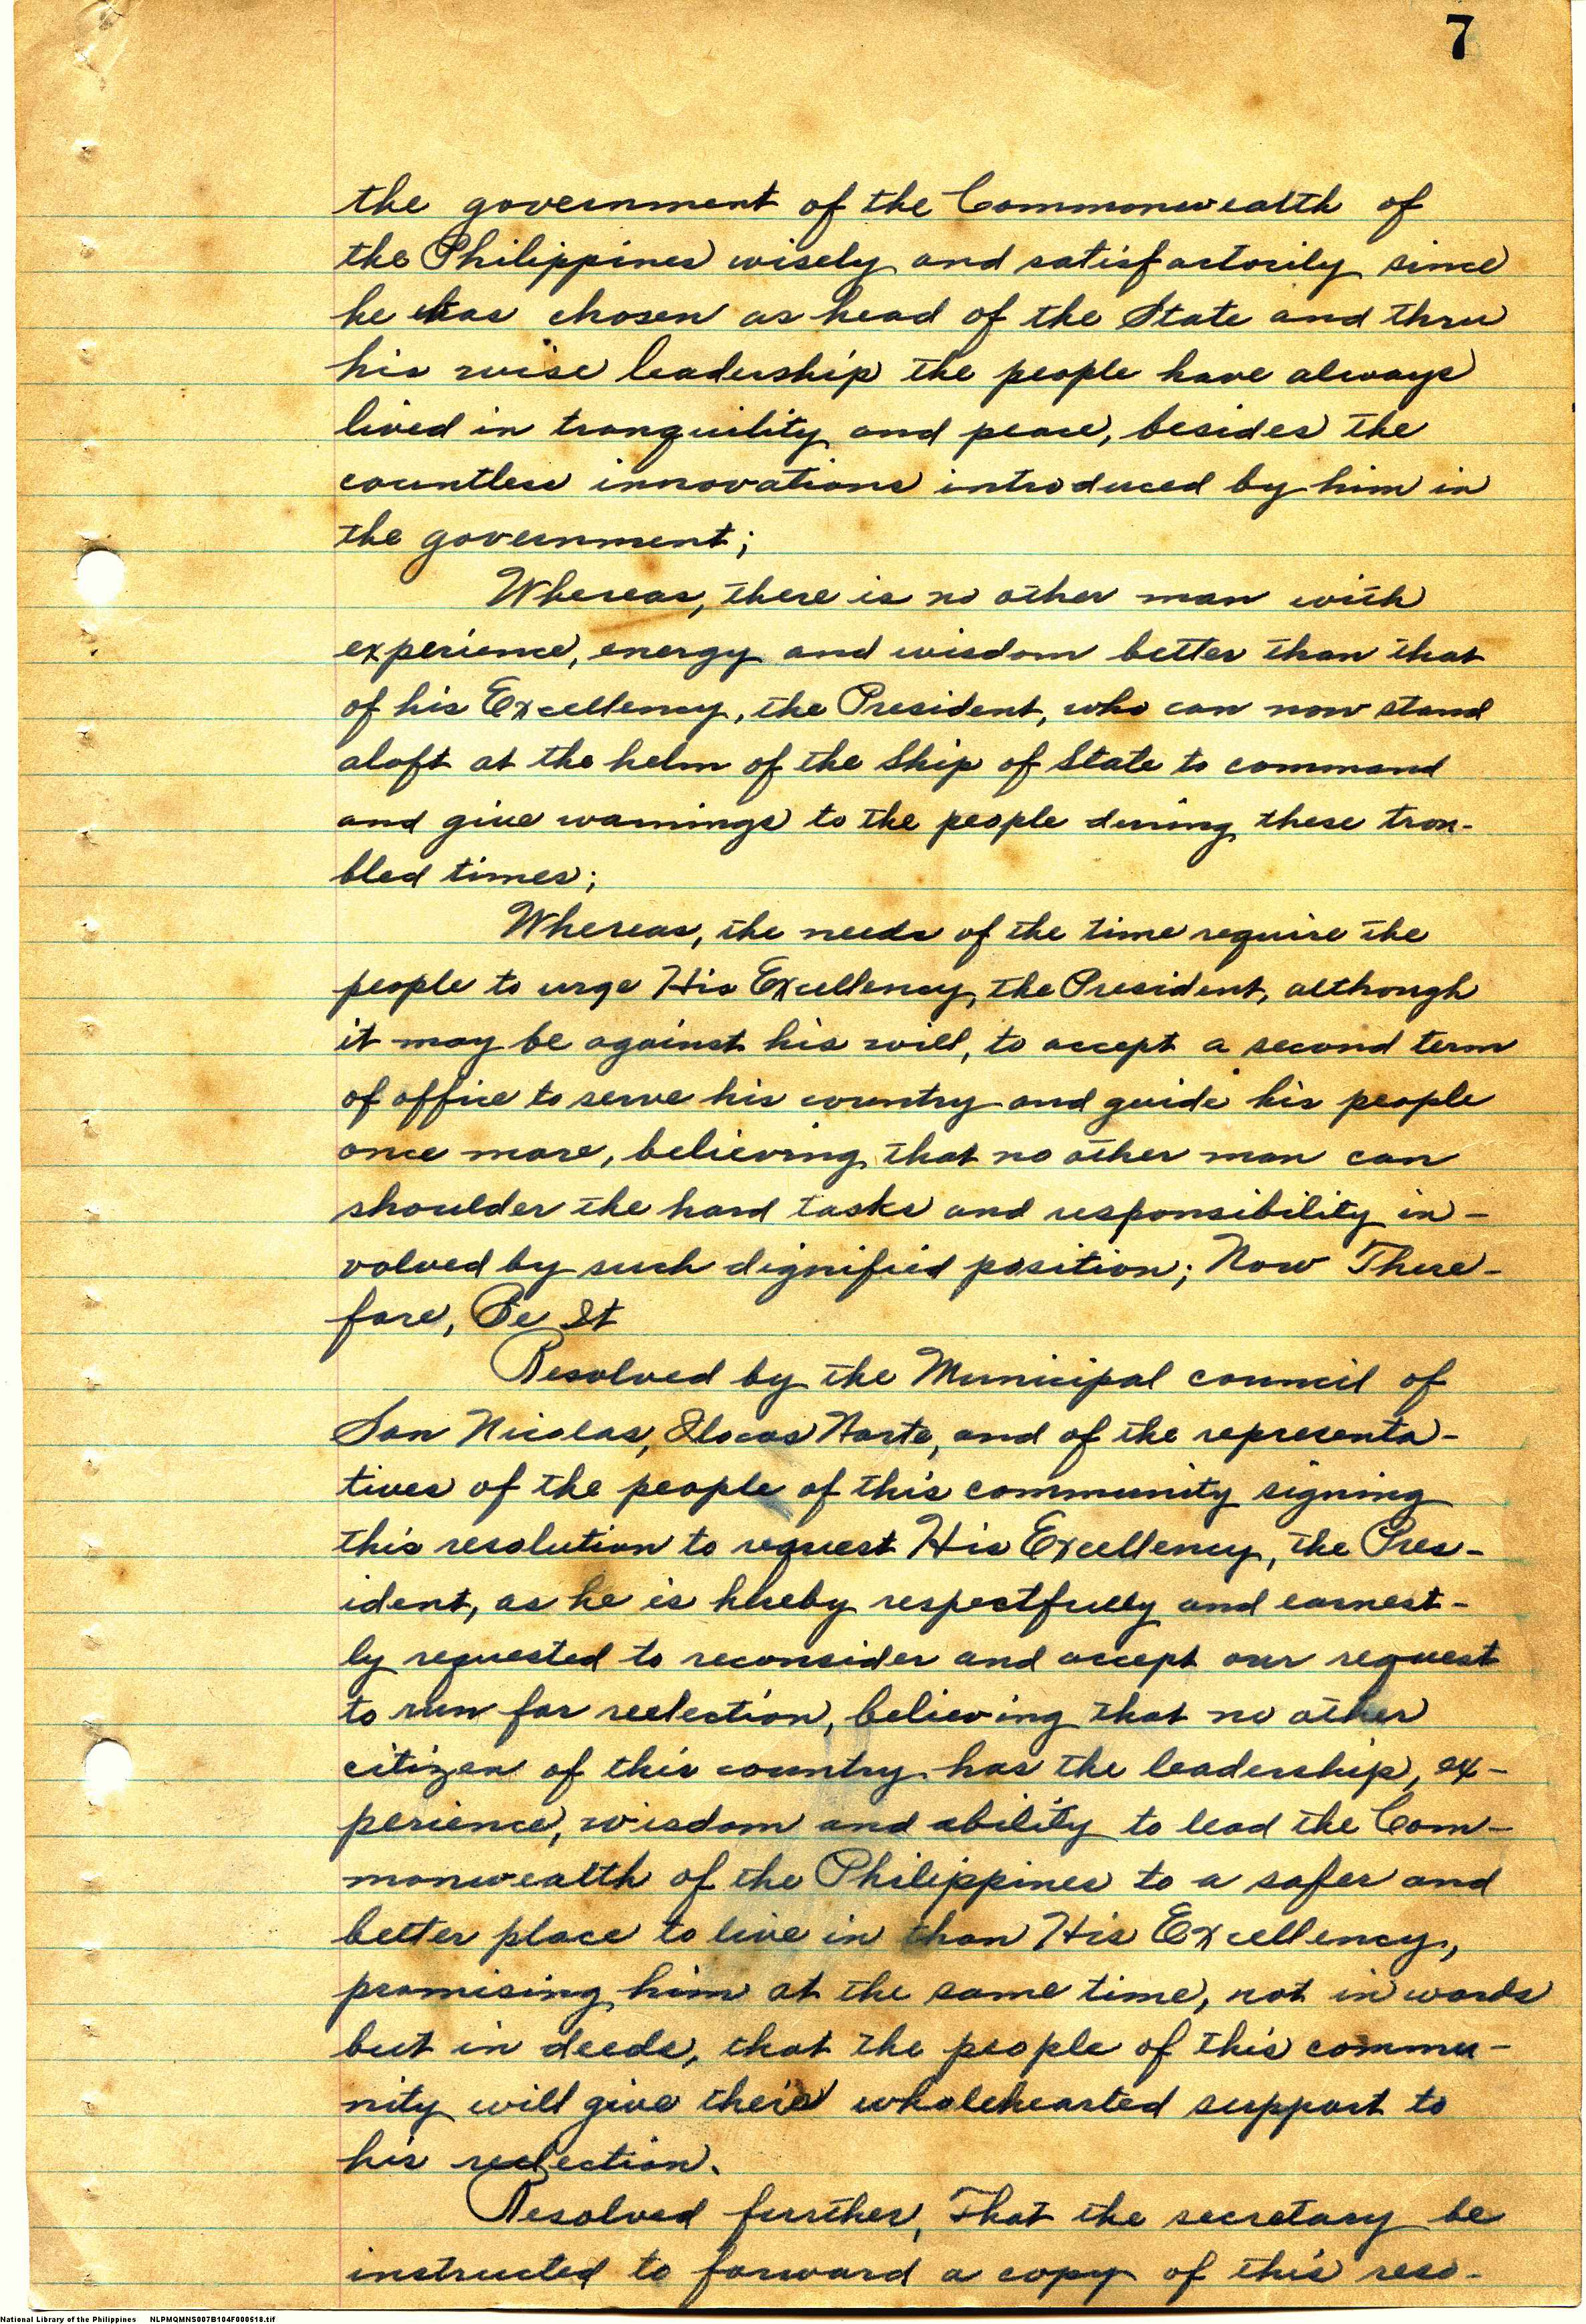 7
the government of the Commonwealth of
the Philippines wisely and satisfactorily since
he was chosen as head of the State and thru
his wise leadership the people have always
lived in tranquility and peace, besides the
countless innovations introduced by him in
the government;
Whereas, there is no other man with
experience, energy and wisdom better than that
of his Excellency, the President, who can now stand
aloft at the helm of the Ship of State to command
and give warnings to the people during these trou-
bled times;
Whereas, the needs of the time require the
people to urge His Excellency, the President, although
it may be against his will, to accept a second term
of office to serve his country and guide his people
once more, believing that no other man can
shoulder the hard tasks and responsibility in-
volved by such dignified position; Now There-
fore, Be It
Resolved by the Municipal council of
San Nicolas, Ilocos Norte, and of the representa-
tives of the people of this community signing
this resolution to request His Excellency, the Pres-
ident, as he is hereby respectfully and earnest-
ly requested to reconsider and accept our request
to run for reelection, believing that no other
citizen of this country has the leadership, ex-
perience, wisdom and ability to lead the Com-
monwealth of the Philippines to a safer and
better place to live in than His Excellency,
promising him at the same time, not in words
but in deeds, that the people of this commu-
nity will give their wholehearted support to
his reelection.
Resolved further, That the secretary be
instructed to forward a copy of this reso-
National Library of the Philippines NLPMQMNS007B104F000618.tif